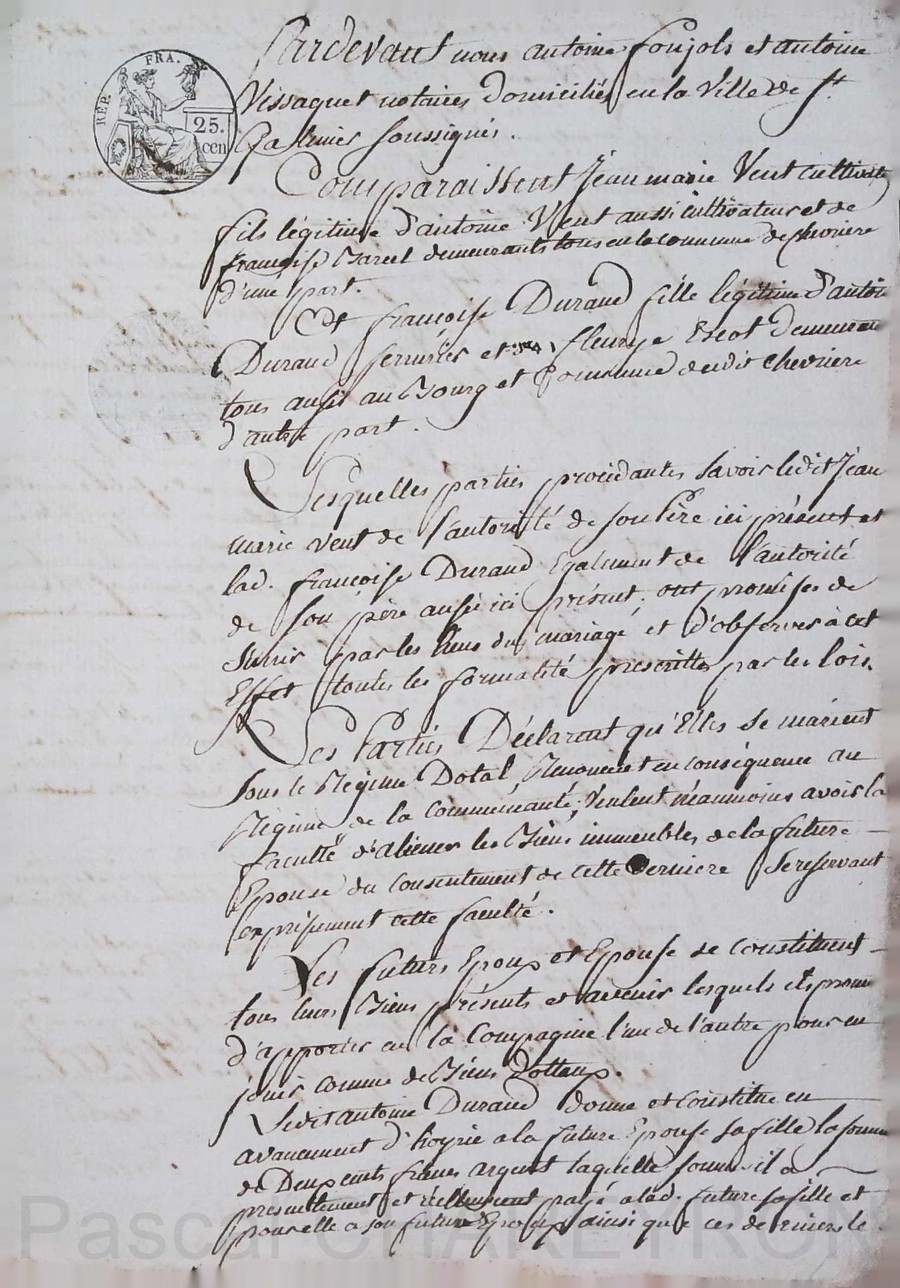 REP. FRA.
25.
cen
Pardevant nous antoine foujols et antoine
Vissaguet notaires domiciliés en la Ville de St
Galmier soussignés.
Comparaissent Jean marie Vent cultivate
fils légitime d'antoine Vent aussi cultivateur et de
françoise demeurants tous en la commune de chevriere
d'une part.
Et françoise Durand fille légitime d'antoi
Durand serrurier et fleurye Escot demeuran
tous aussi au Bourg et commune dudit chevriere
d'autre part.
Lesquelles parties procédantes savoir ledit Jean
marie vent de l'autorité de son Père ici présent et
lad. françoise Durand Egalement de l'autorité
de son père aussi ici présent; ont promises de
sunir par les liens du mariage et d'observer à cet
Effet toutes les formalité prescrittes par les lois.
Les Parties Déclarent qu'Elles se marient
sous le Régime Dotal, Renoncent en conséquence au
Régime de la communauté, Veulent néanmoins avoir la
faculté d'aliener les Biens immeubles de la future
Epouse du consentement de cette derniere se reservant
expressement cette faculté.
Les futurs Epoux et Epouse se constituent
tous leurs Biens présents et avenir lesquels ils prome
d'apporter en la Compagnie l'un de l'autre pour en
jouir comme de Biens Dottaux.
Ledit antoine Durand donne et constitue en
avancement d'hoyrie a la future Epouse sa fille la somme
de Deux cents francs argent laquelle somme il a
presentement et réellement payé a lad. future sa fille et
pour elle a son futur Epoux ainsi que ces derniers le
Pascal CHAREYRON